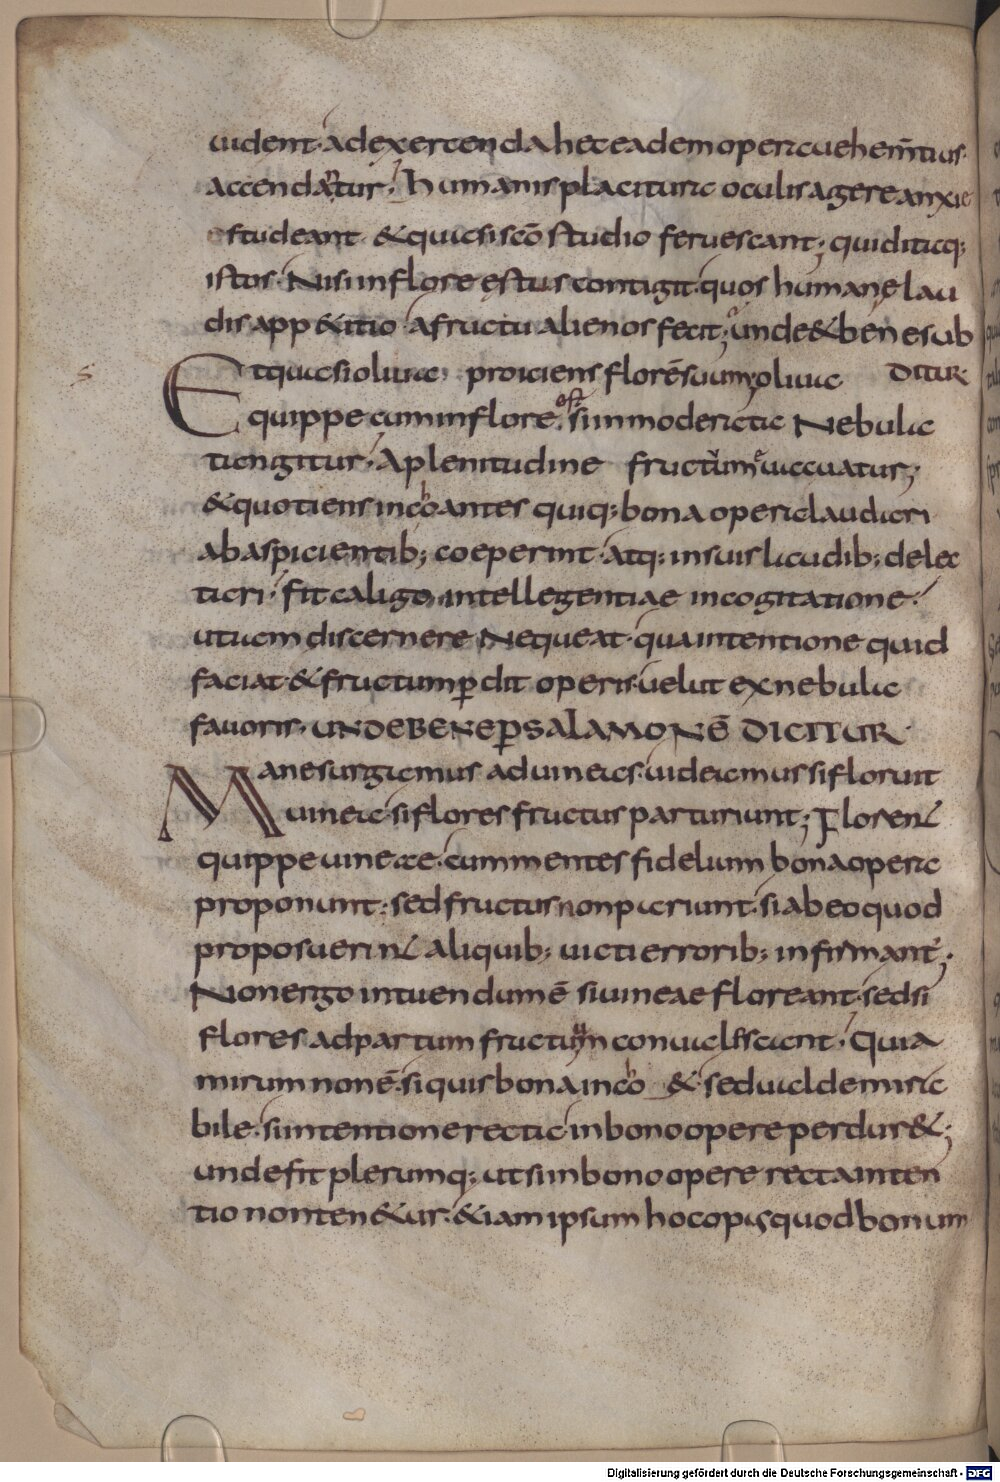 uident· ad exercenda hec eadem opera uehem̄tius·
accendantur· humanis placitura oculis agere anxie
studeant· & quasi sc̄o studio feruescant; quid itaq;
istos· Nisi in flore ęstus contigit· quos humanę lau
dis app&itio· a fructu alienos fecit; unde & bene sub
Et quasi oliua proiciens florē suum; oliua ditur
quippe cum in flore est· si inmoderata Nebula
tangitur· A plenitudine fructuum euacuatur;
& quotiens inchoantes quiq; bona opera laudari
ab aspicientib; coeperint· atq; in suis laudib; delec
tari· fit caligo intellegentiae in cogitatione·
ut iam discernere Nequeat· qua intentione quid
faciat· & fructum ꝑdit operis· uelut ex nebula
fauoris· UNDE BENE ꝑ SALAMONĒ DICITUR
Mane surgamus ad uineas· uideamus si floruit
uinea· si flores fructus parturiunt; Florent
quippe uineae· cum mentes fidelium bona opera
proponunt· sed fructus non pariunt· si ab eo quod
proposuerint aliquib; uicti errorib; infirmant̄;
Non ergo intuendum ē si uineae floreant· sed si
flores ad partum fructuum conualescant· Quia
mirum non ē· si quis bona incho&· sed ualde mira
bile· si intentione recta in bono opere perdur&;
unde fit plerumq; ut si in bono opere recta inten
tio non ten&ur· & iam ipsum hoc opus quod bonum
Digitalisierung gefördert durch die Deutsche Forschungsgemeinschaft - DFG